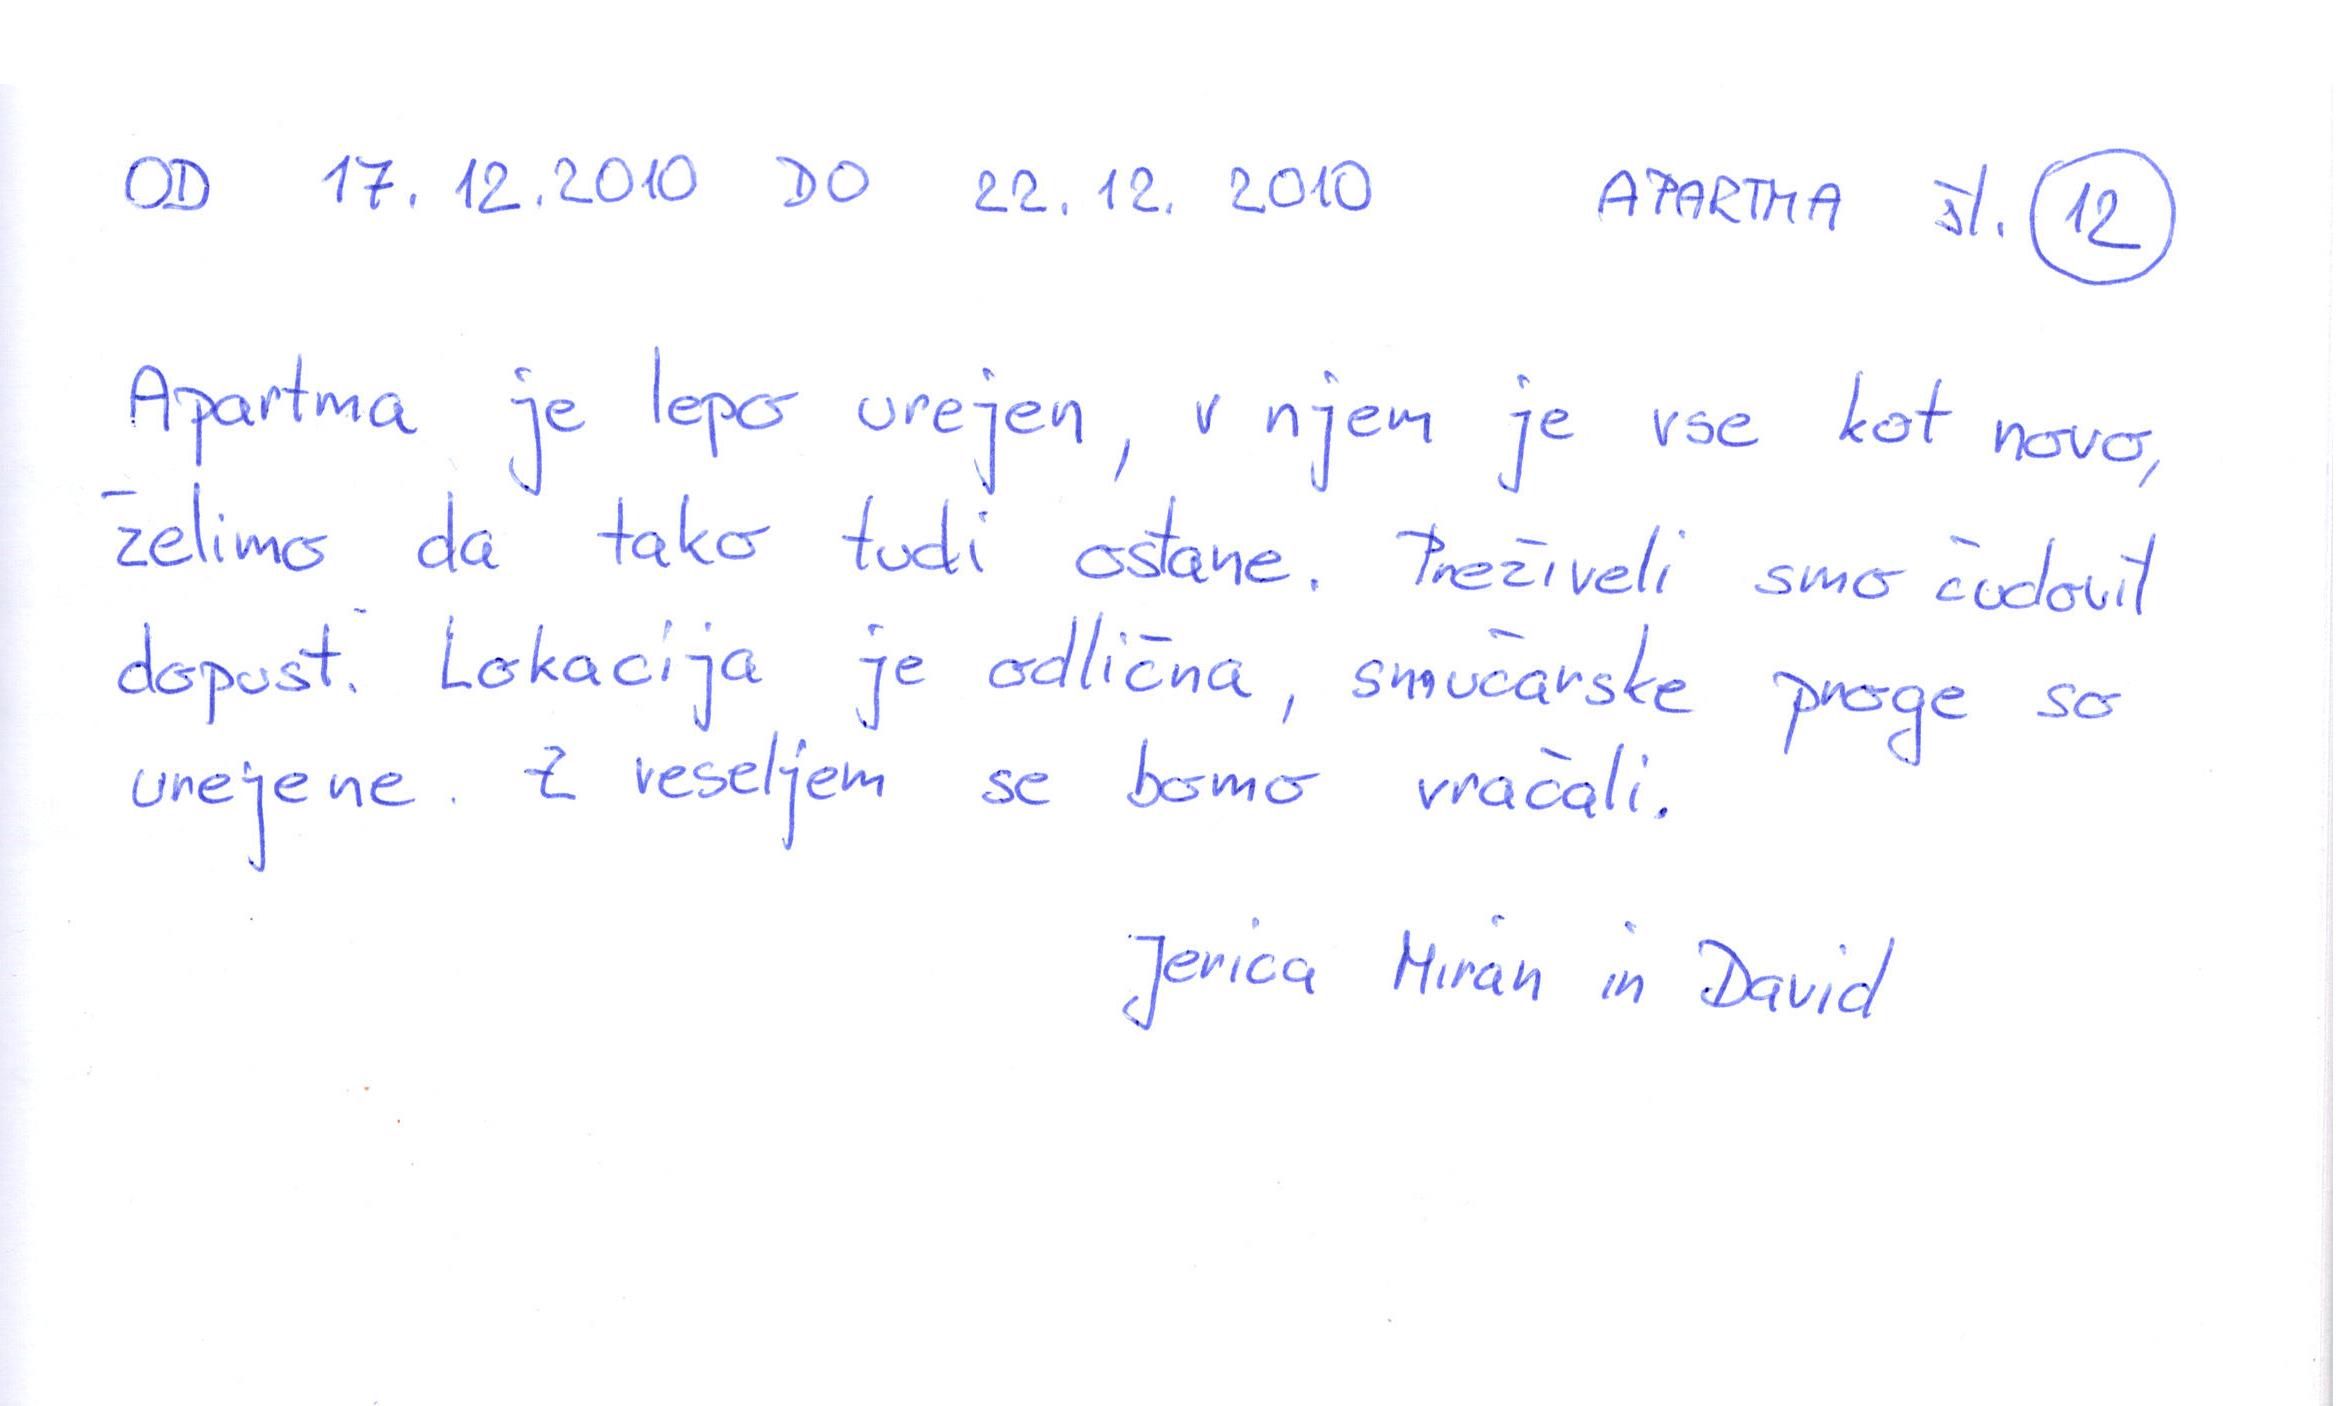 OD 17. 12. 2010 DO 22. 12. 2010 APARTMA št. 12
Apartma je lepo urejen, v njem je vse kot novo,
želimo da tako tudi ostane. Preživeli smo čudovit
dopust. Lokacija je odlična, smučarske proge so
urejene. Z veseljem se bomo vračali.
Jerica Miran in David